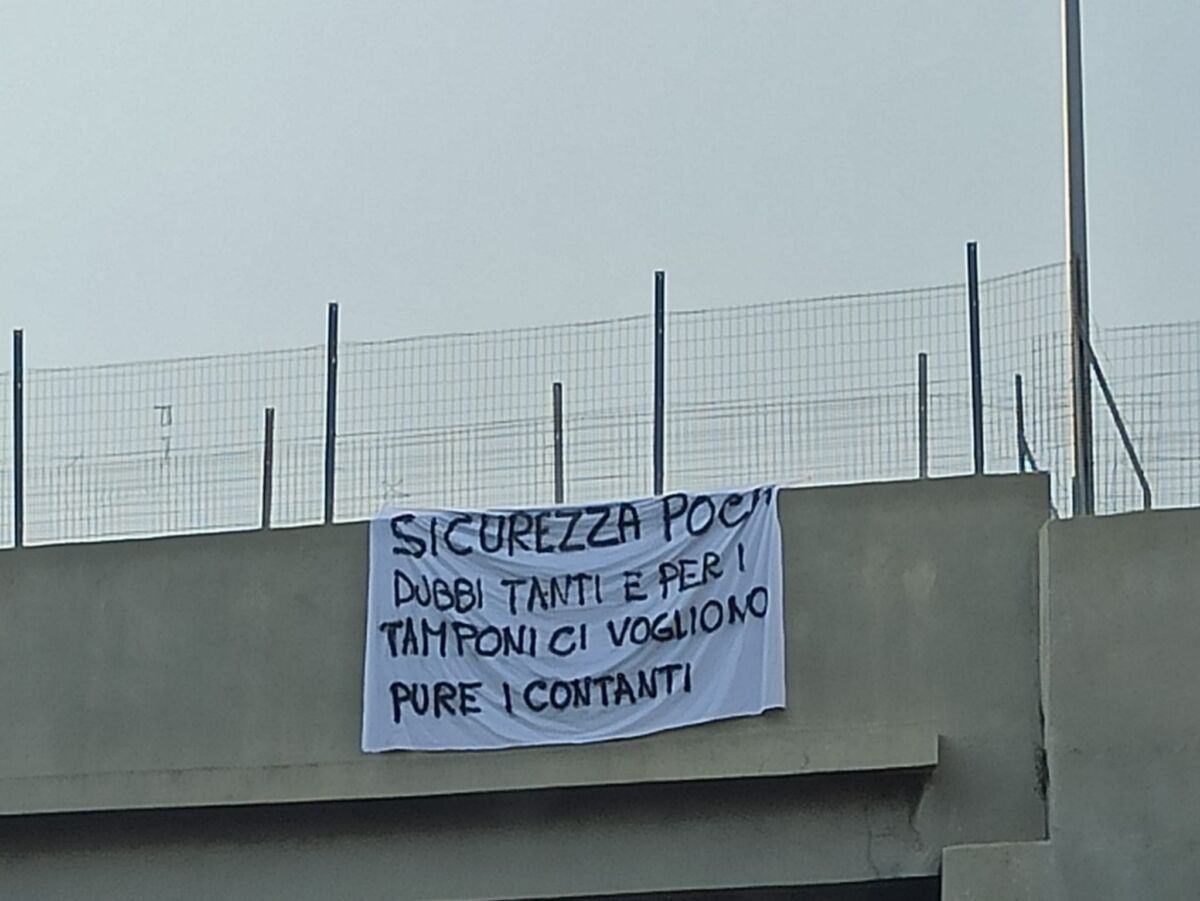 SICUREZZA POCA
DUBBI TANTI E PER I
TAMPONI CI VOGLIONO
PURE I CONTANTI